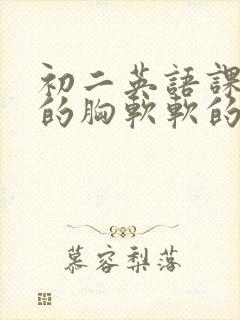 初二英語課
的胸軟軟的
慕容梨落